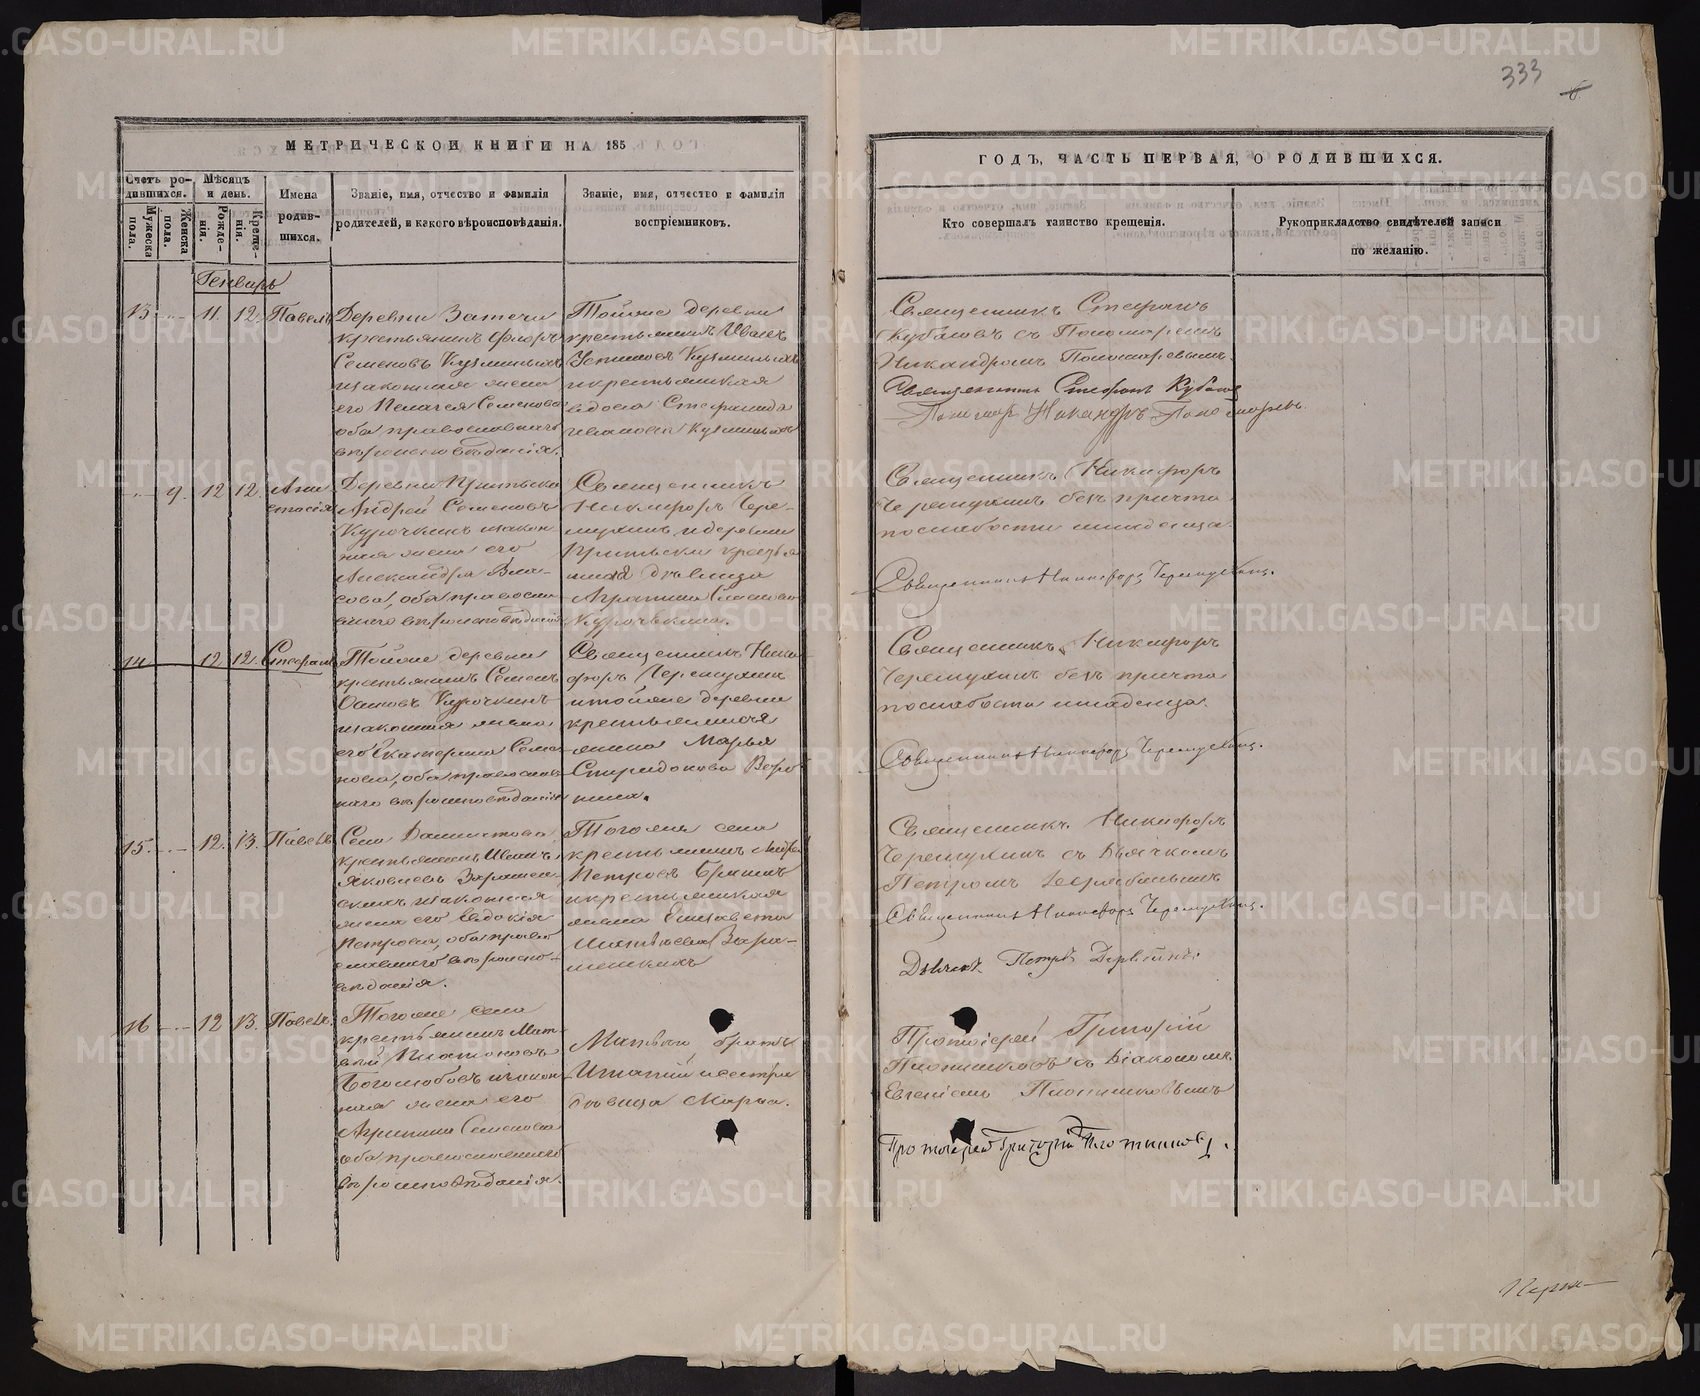 333
МЕТРИЧЕСКОЙ КНИГИ НА 185
Счетъ ро-
дившихся.
Мужеска
пола.
Женска
пола.
Мѣсяцъ
и день.
Рожде-
нія.
Креще-
нія.
Имена
родив-
шихся.
Званіе, имя, отчество и фамилія
родителей, и какого вѣроисповѣданія.
Званіе, имя, отчество и фамилія
воспріемниковъ.
Генварь
13 11. 12. Павелъ
Деревни
крестьянинъ Флоръ
Семеновъ Кузминыхъ
и законная жена
его Пелагея Семенова
оба православнаго
вѣроисповѣданія.
Тойже деревни
крестьянинъ Иванъ
Кузминыхъ
и крестьянская
вдова Стефанида
Иванова Кузминыхъ
9. 12 12. Ана
стасія
Деревни
Андрей Семеновъ
Курочкинъ и закон-
ная жена его
Александра Вла-
сова, оба православ
наго вѣроисповѣданія
Священникъ
Никифоръ Чере-
мухинъ и деревни
кресть
дѣвица
Курочькина.
14 12. 12. Стефанъ
Тойже деревни
крестьянинъ Семенъ
Осиповъ Курочкинъ
и законная жена
его Екатерина Семе-
нова, оба православ
наго вѣроисповѣданія
Священникъ Ники-
форъ Черемухинъ
и тойже деревни
крестьянская
жена Марья
Спиридонова
15. 12. 13. Павелъ
Села
крестьянинъ Иванъ
Яковлевъ
и законная
жена его Евдокія
Петрова, оба право
славнаго вѣроиспо-
вѣданія.
Тогоже села
крестьянинъ
Петровъ
и крестьянская
жена Елизавета
16 12 13. Павелъ.
Тогоже села
крестьянинъ Мат-
вѣй Платоновъ
Боголюбовъ и закон-
ная жена его
Агрипина Семенова
оба православнаго
вѣроисповѣданія.
Матвѣя братъ
и сестра
дѣвица Марья.
ГОДЪ, ЧАСТЬ ПЕРВАЯ, О РОДИВШИХСЯ.
Кто совершалъ таинство крещенія.
Рукоприкладство свидѣтелей записи
по желанію.
Священникъ Стефанъ
Кубасовъ съ Пономаремъ
Никандромъ Пономаревымъ.
Священникъ Стефанъ Кубасов
Пономарь Никандръ Пономаревъ.
Священникъ Никифоръ
Черемухинъ безъ причта
по слабости младенца.
Священникъ Никифоръ Черемухинъ.
Священникъ Никифоръ
Черемухинъ безъ причта
по слабости младенца.
Священникъ Никифоръ Черемухинъ.
Священникъ Никифоръ
Черемухинъ съ Дьячкомъ
Петромъ
Священникъ Никифоръ Черемухинъ.
Дьячекъ Петръ
Протоіерей Григорій
Плотниковъ съ Діакономъ
Евгеніемъ Плотниковымъ
Протоіерей Григорій Плотниковъ.
METRIKI.GASO-URAL.RU